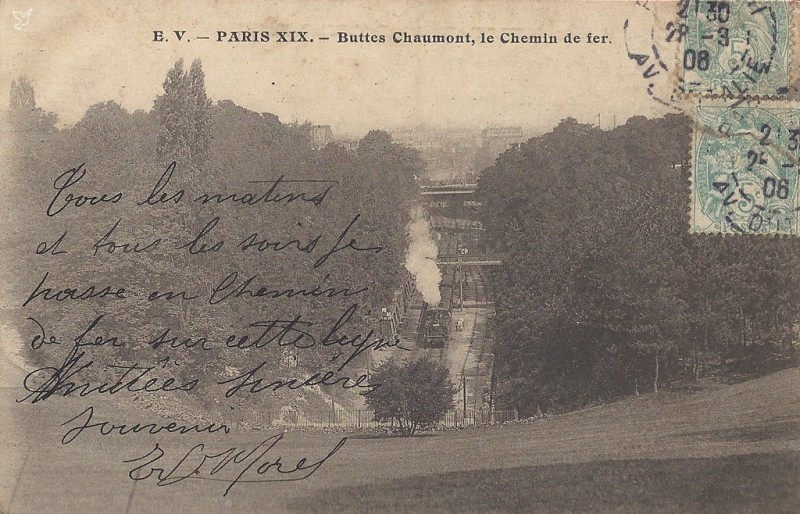 E. V. — PARIS XIX. — Buttes Chaumont, le Chemin de fer.
Tous les matins
et tous les soirs je
passe en Chemin
de fer sur cette ligne
Amitiées sincères
souvenir
Morel
30
28 - 3
06
5
2
06